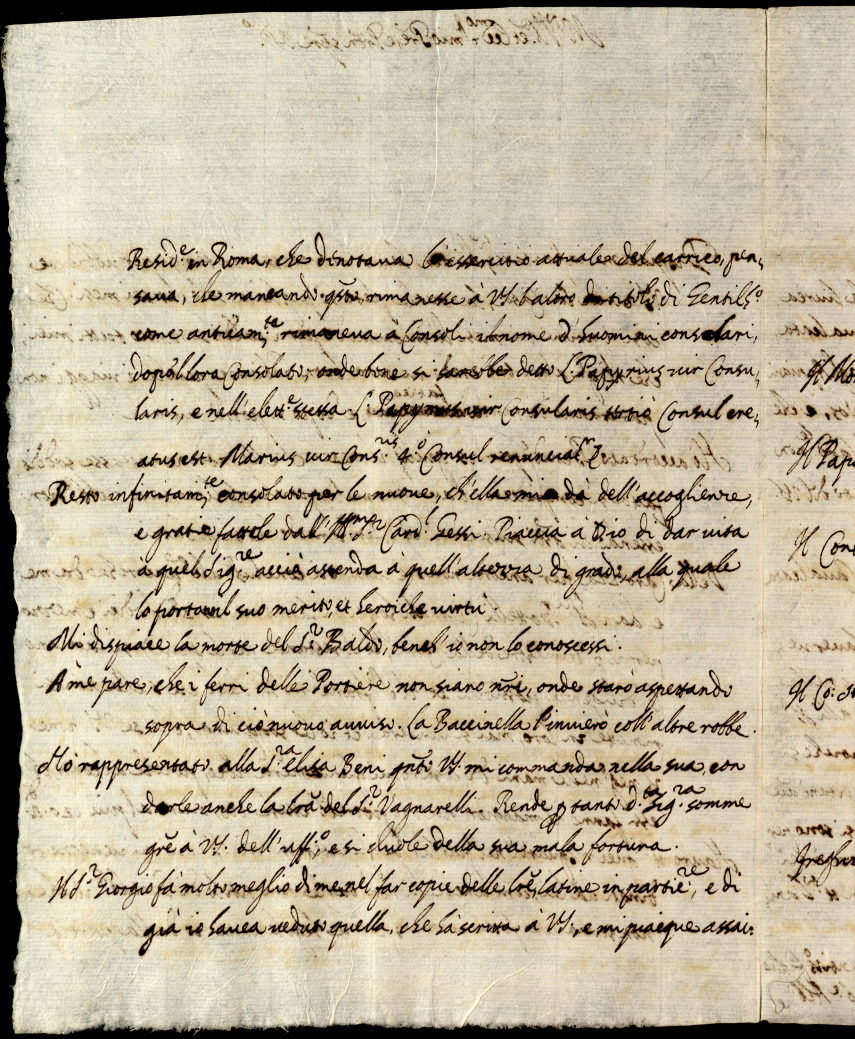 Resid.e in Roma, che dinotaua l'essercitio attuale del carrico, pen,
saua, che mancando q.sto, rimanesse à V.S. l'altro di Gentilh.o
come anticam.te rimaneua à Consoli il nome d'huomini consolari,
dopò l'lora Consolato, onde bene si sarebbe detto L. Papyrius uir Consu,
laris, e nell'elett.e stessa L. Papyrius uir Consularis tertiò Consul cre,
atus est. Marius uir Cons.ris 4.o Consul renunciat.r
Resto infinitam.te consolato per le nuoue, ch'ella mi dà dell'accoglienze,
e gratie fattele dall'Ill.mo S.r Card.l Gessi. Piaccia à Dio di dar uita
à quel Sig.re acciò ascenda à quell'altezza di grado, alla quale
lo portano il suo merito, et heroiche uirtù.
Mi dispiace la morte del S.r Baldo, benche io non lo conoscessi.
A' me pare, che i ferri delle Portiere non siano nri, onde starò aspettando
sopra di ciò nuouo auuiso. La Baccinella l'inuierò coll'altre robbe.
Hò rappresentato alla S.ra Elisa Beni q.nto V.S. mi commanda nella sua, con
darle anche la lrã del S.r Vagnarelli. Rende p tanto d.ta Sig.ra somme
grẽ à V.S. dell'uff.o, e si duole della sua mala fortuna.
Il S.r Giorgio fà molto meglio di me nel far copie delle lrẽ, latine in partic.re, e di
già io hauea ueduto quella, che hà scritta à V.S., e mi piacque assai.
Il Papi
Il Con